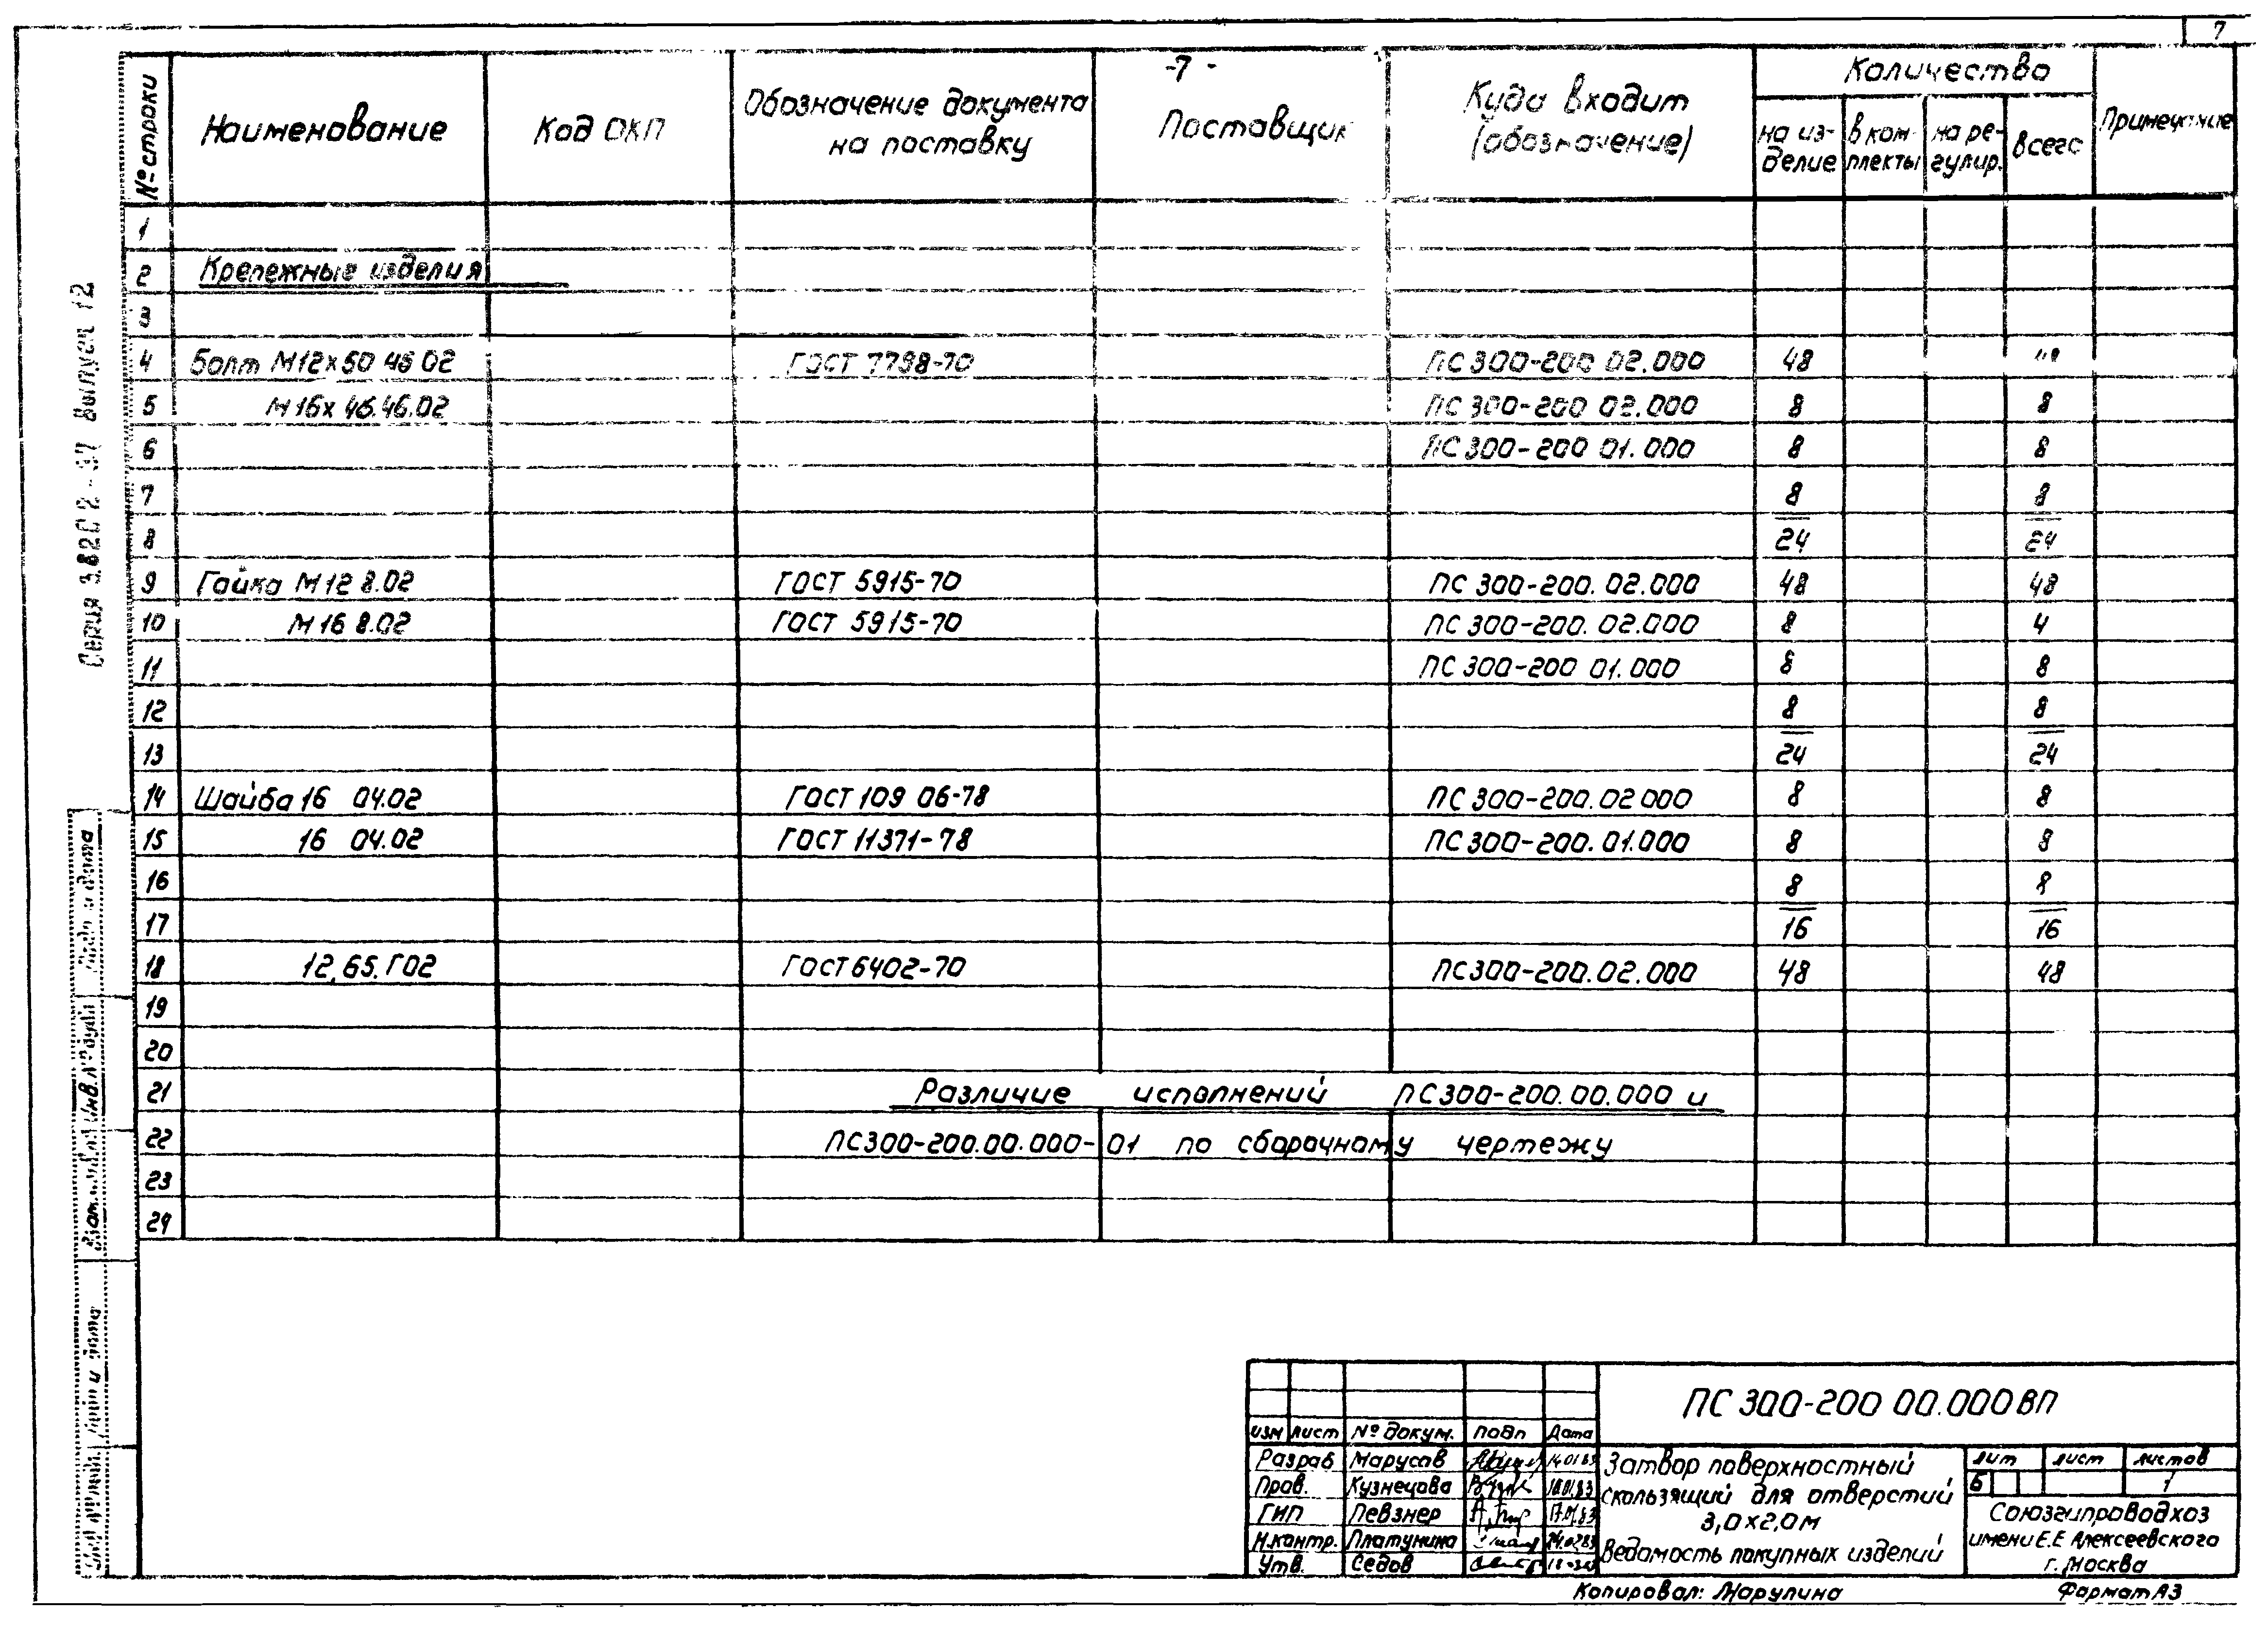 7
-7-
№ строки
Наименование
Код ОКП
Обозначение документа
на поставку
Поставщик
Куда входит
(обозначение)
Количество
на из-
делие
в ком-
плекты
на ре-
гулир.
всего
Примечание
1
2 Крепежные изделия
3
4 Болт М12х50 46 02 ГОСТ 7798-70 ПС 300-200 02.000 48
5 М16х 46.46.02 ПС 300-200 02.000 8 8
6 ПС 300-200 01.000 8 8
7 8 8
8 24 24
9 Гайка М12 8.02 ГОСТ 5915-70 ПС 300-200.02.000 48 48
10 М16 8.02 ГОСТ 5915-70 ПС 300-200.02.000 8 4
11 ПС 300-200 01.000 8 8
12 8 8
13 24 24
14 Шайба 16 04.02 ГОСТ 109 06-78 ПС 300-200.02 000 8 8
15 16 04.02 ГОСТ 11371-78 ПС 300-200.01.000 8 8
16 8 8
17 16 16
18 12.65.Г02 ГОСТ 6402-70 ПС300-200.02.000 48 48
19
20
21 Различие исполнений ПС300-200.00.000 и
22 ПС300-200.00.000-01 по сборочному чертежу
23
24
Выпуск 12
Серия
ПС 300-200 00.000 ВП
изм лист № докум. подп Дата
Разраб Марусов
Пров. Кузнецова
ГИП Певзнер
Н.контр. Платунина
Утв. Седов
Затвор поверхностный
скользящий для отверстий
3,0х2,0м
Ведомость покупных изделий
лит лист листов
Б 1
Союзгипроводхоз
имени Е.Е Алексеевского
г. Москва
Копировал: Марулина
Формат А3